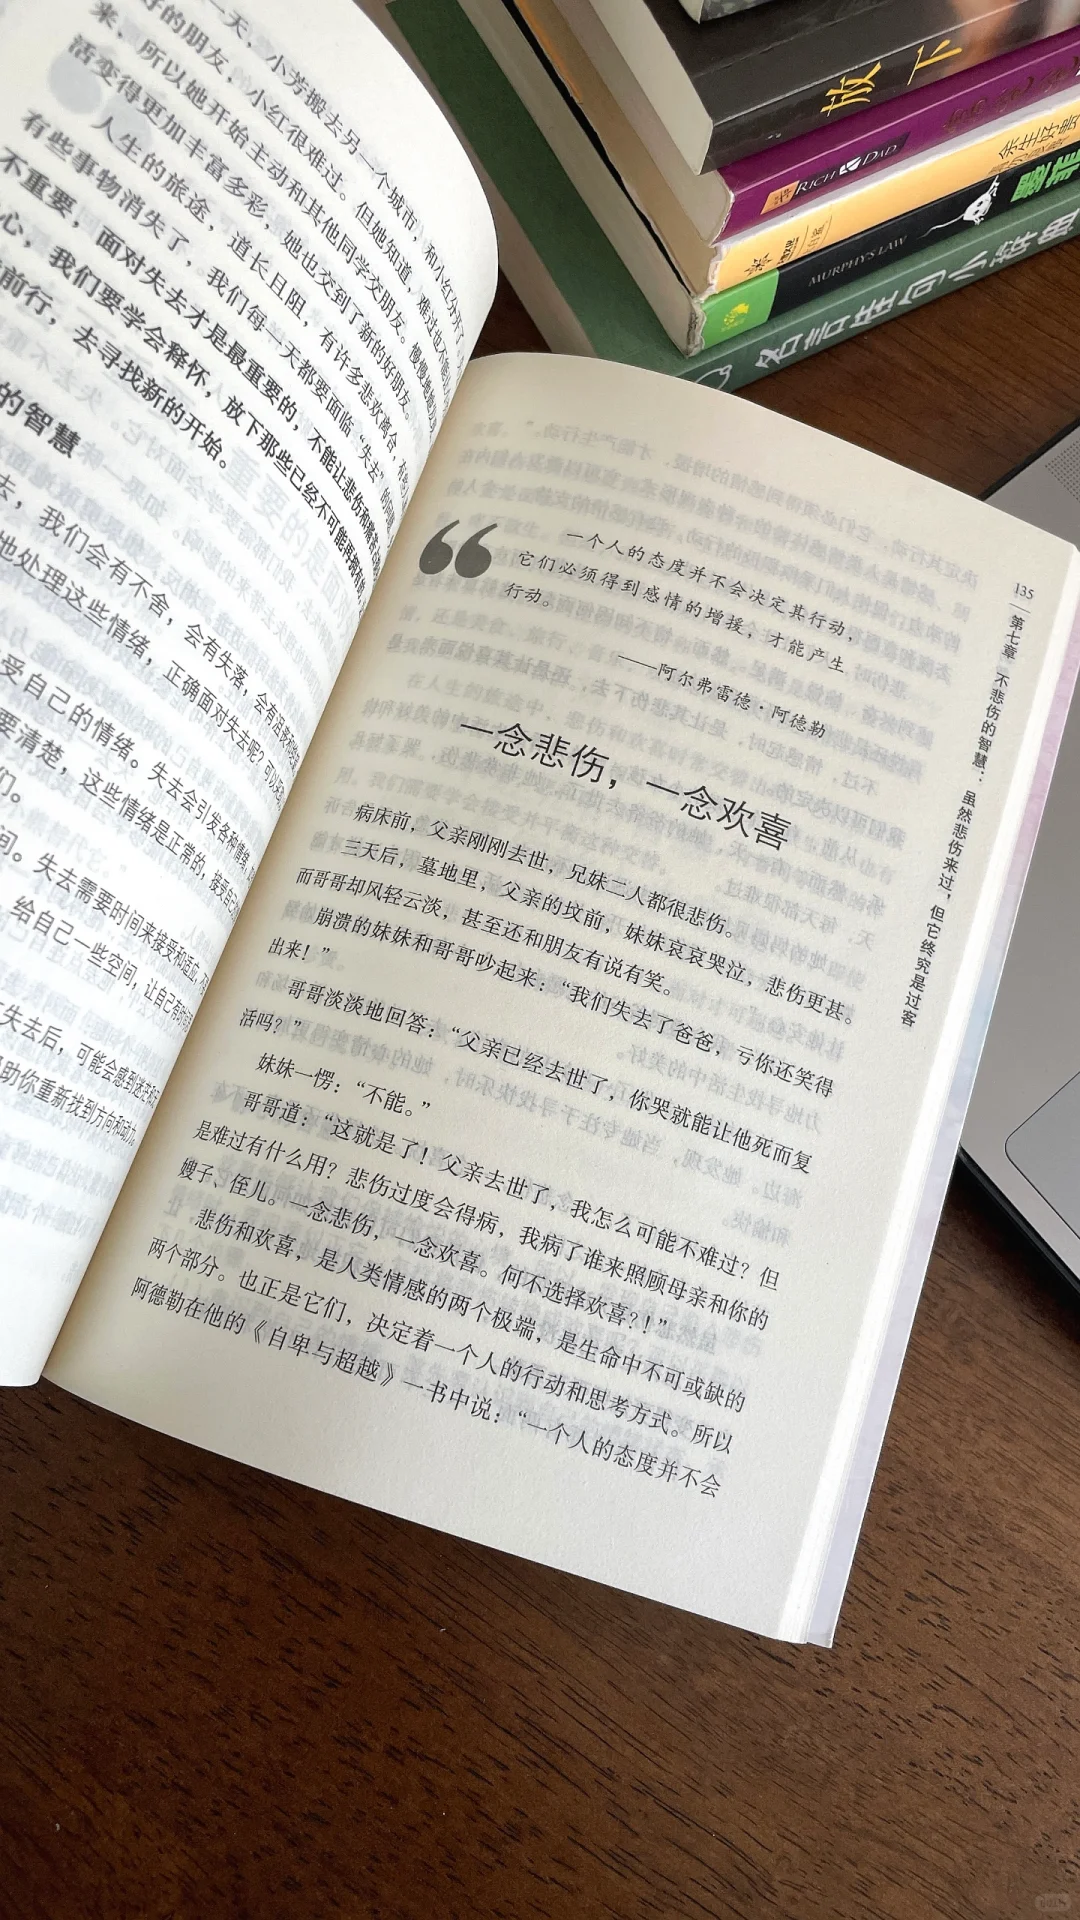 一天，小芳搬去另一个城市，和小红分开了
好的朋友，小红很难过。但她知道，难过也不能
来，所以她开始主动和其他同学交朋友。慢慢地她
活变得更加丰富多彩，她也交到了新的好朋友。
人生的旅途，道长且阻，有许多悲欢离合，有
有些事物消失了，我们每一天都要面临“失去”的问
不重要，面对失去才是最重要的，不能让悲伤和
心，我们要学会释怀，放下那些已经不可能再拥有
前行，去寻找新的开始。
的智慧
去，我们会有不舍，会有失落，会有沮丧
地处理这些情绪，正确面对失去呢？可以
受自己的情绪。失去会引发各种情绪，
要清楚，这些情绪是正常的，接受自己
们。
间。失去需要时间来接受和适应，
给自己一些空间，让自己有时间
失去后，可能会感到迷茫和
助你重新找到方向和动力。
一个人的态度并不会决定其行动，
它们必须得到感情的增援，才能产生
行动。
——阿尔弗雷德·阿德勒
一念悲伤，一念欢喜
病床前，父亲刚刚去世，兄妹二人都很悲伤。
三天后，墓地里，父亲的坟前，妹妹哀哀哭泣，悲伤更甚。
而哥哥却风轻云淡，甚至还和朋友有说有笑。
崩溃的妹妹和哥哥吵起来：“我们失去了爸爸，亏你还笑得
出来！”
哥哥淡淡地回答：“父亲已经去世了，你哭就能让他死而复
活吗？”
妹妹一愣：“不能。”
哥哥道：“这就是了！父亲去世了，我怎么可能不难过？但
是难过有什么用？悲伤过度会得病，我病了谁来照顾母亲和你的
嫂子、侄儿。一念悲伤，一念欢喜。何不选择欢喜？！”
悲伤和欢喜，是人类情感的两个极端，是生命中不可或缺的
两个部分。也正是它们，决定着一个人的行动和思考方式。所以
阿德勒在他的《自卑与超越》一书中说：“一个人的态度并不会
135
第七章 不悲伤的智慧：虽然悲伤来过，但它终究是过客
放下
RICH DAD
余生好贵
MURPHY'S LAW
墨菲
名言佳句小辞典